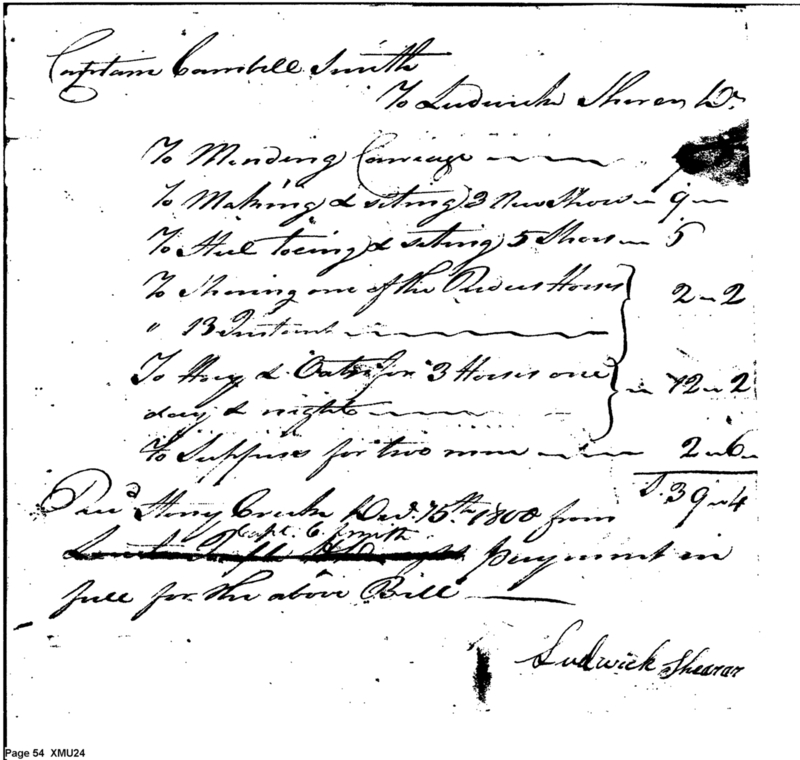 Captain Cambell Smith
To Ludwick Sherer Dr
To Mending Carriage
To Making & seting 3 New Shows 9
To Steel toeing & seting 5 Shoes 5
To Shoeing one of the Horses 2 2
" 13 Instant
To Hay & Oats for 3 Horses one 12 2
day & night
To Suppers for two men 2 6
S. 39 4
Recd Stony Creek 15th 1800 from
Capt. C. Smith
payment in
full for the above Bill
Ludwick Shearar
Page 54 XMU24